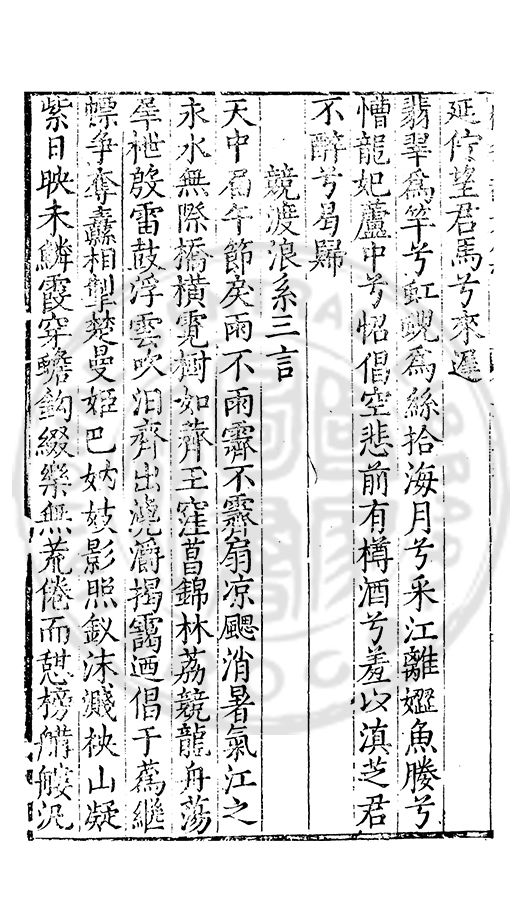 延佇望君馬兮來遲
翡翠爲竿兮虹蜺爲絲拾海月兮采江離孊魚媵兮
慒龍妃蘆中兮怊倡空悲前有樽酒兮羞以滇芝君
不醉兮曷歸
競渡浪系三言
天中届午節戾雨不雨霽不霽扇凉颸消暑氣江之
永水無際橋橫霓樹如薺王窪菖錦林荔競龍舟蕩
翠枻殷雷鼓浮雲吹汨齊出澆灂揭靄迺倡于蔿繼
螵爭奪纛相掣楚曼姫巴妠妓影照釵沫濺袂山凝
紫日映未鱗霞穿蟾鈎綴樂無荒倦而憇榜艩艛汎